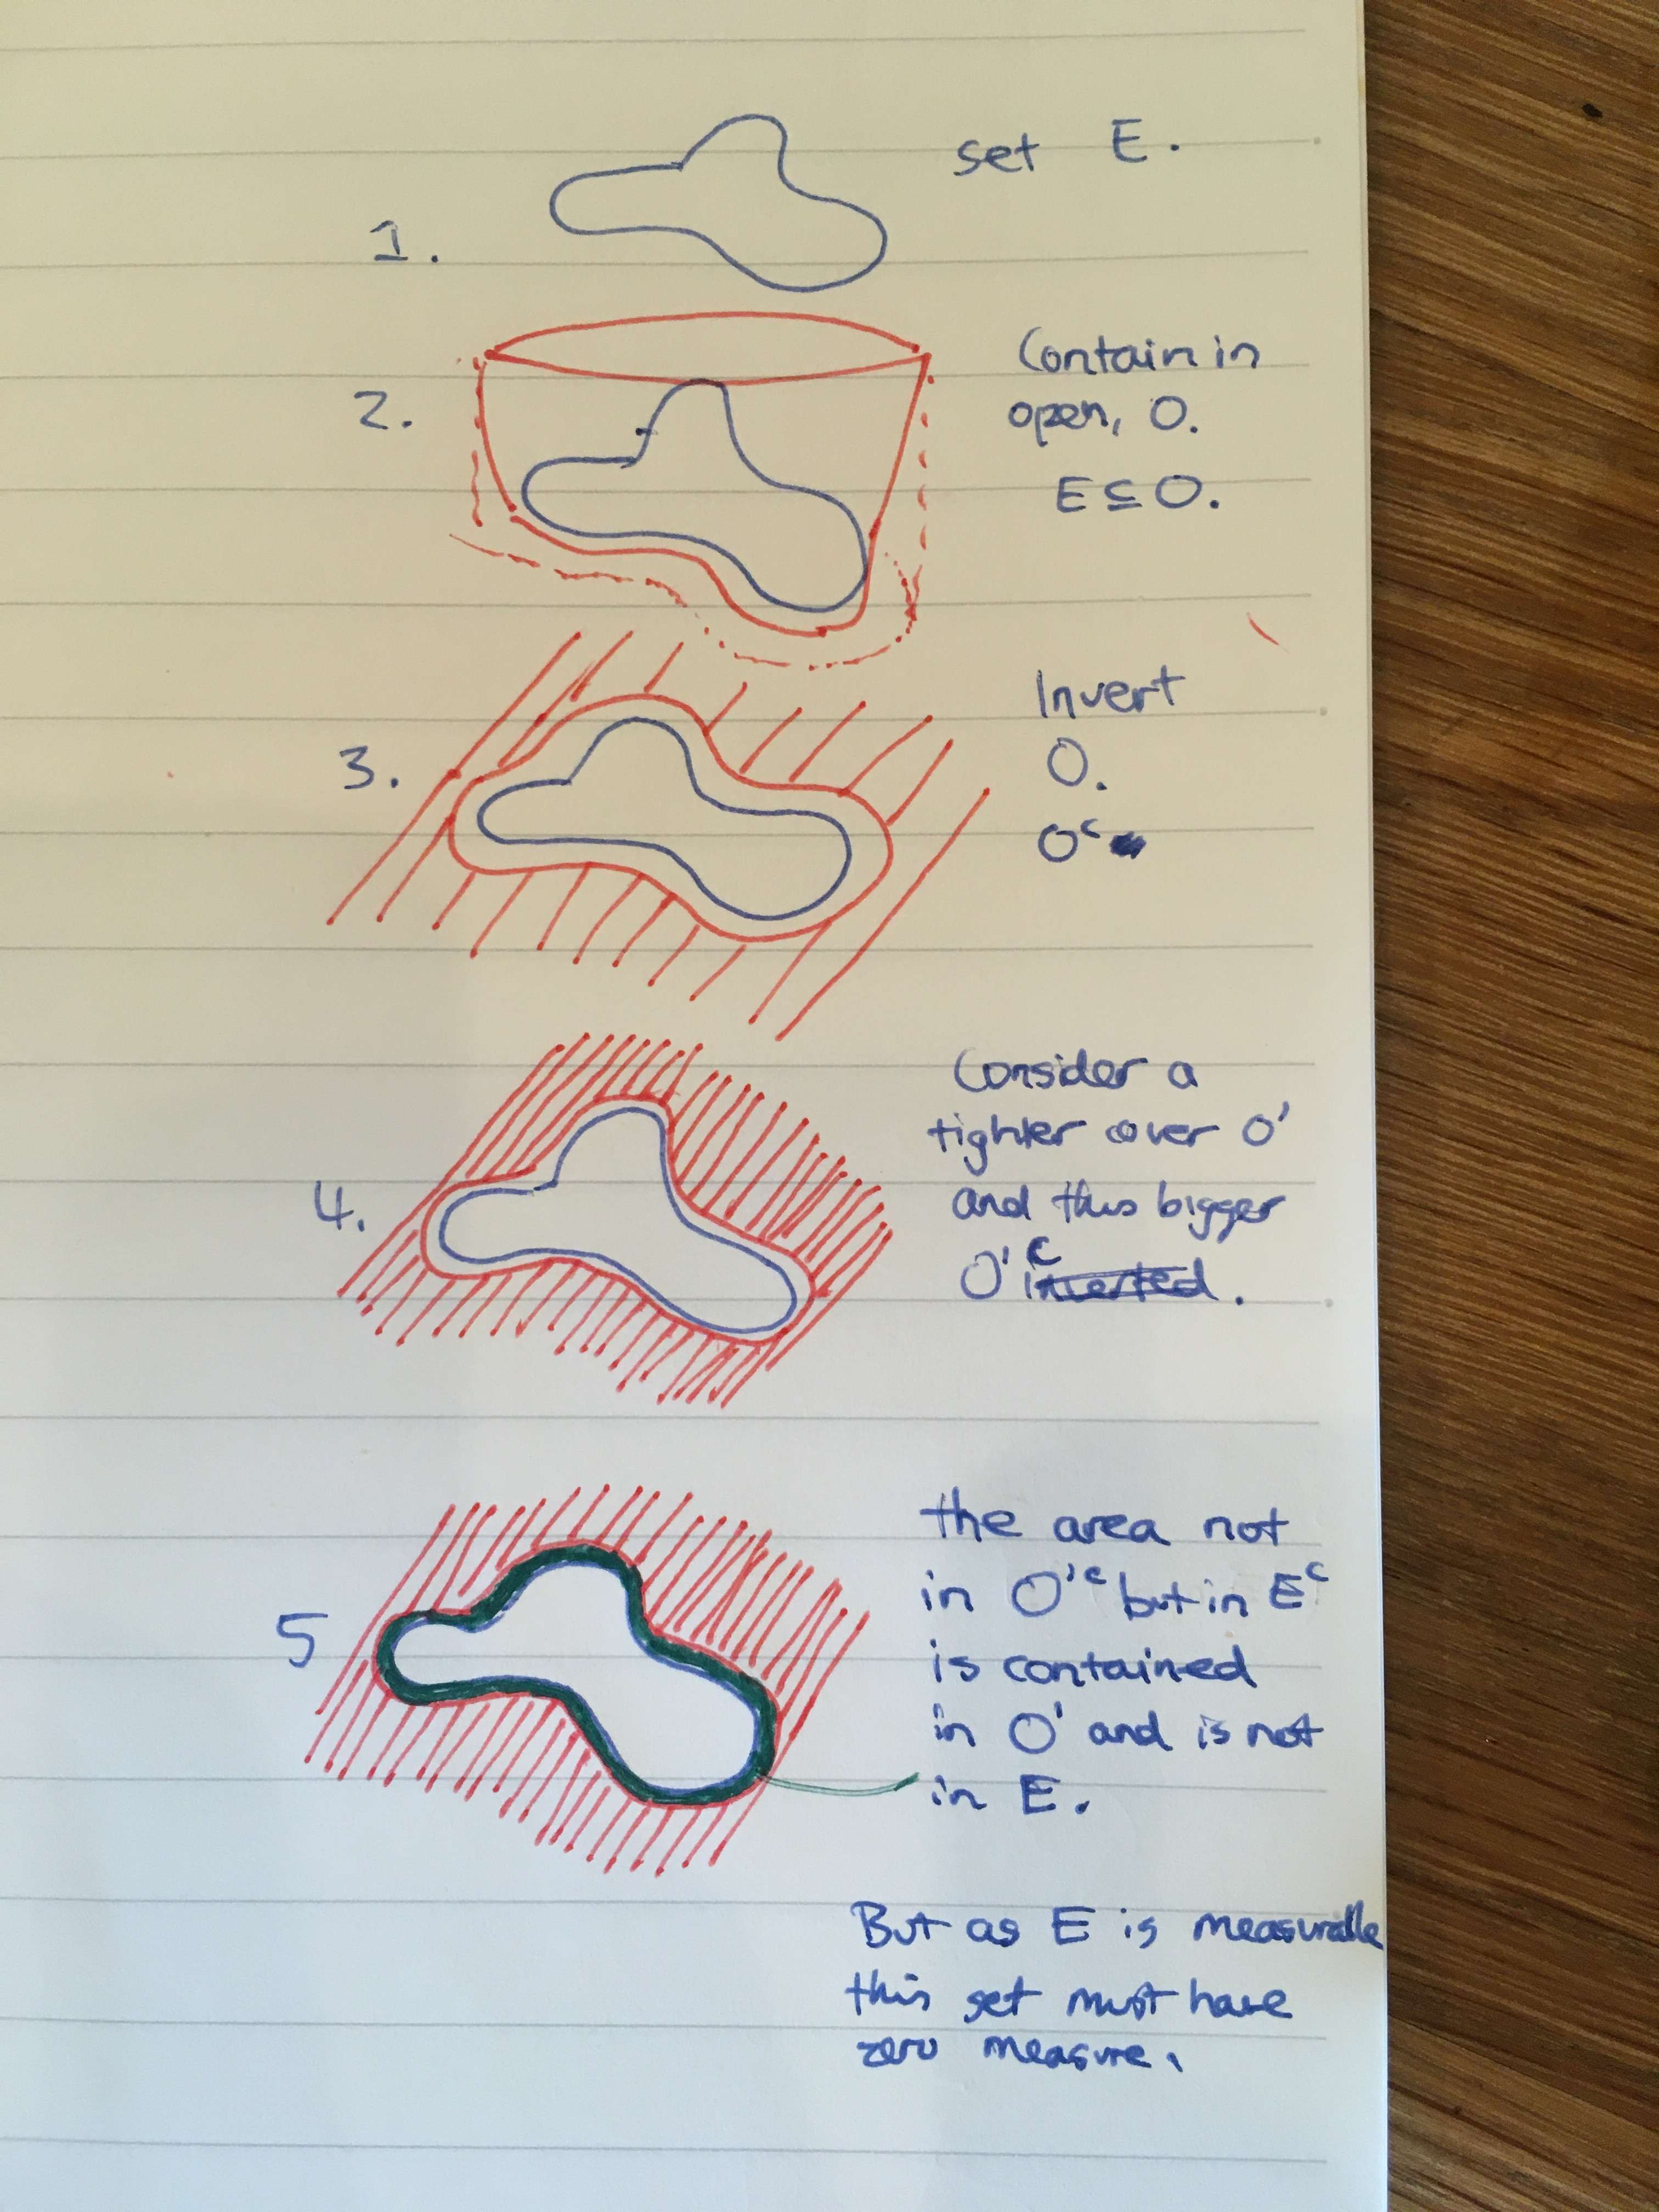 1.
set E.
2.
Contain in
open, O.
E ⊆ O.
3.
Invert
O.
Oᶜ
4.
Consider a
tighter cover O'
and thus bigger
O'ᶜ inverted.
5
the area not
in O'ᶜ but in Eᶜ
is contained
in O' and is not
in E.
But as E is measurable
this set must have
zero measure.